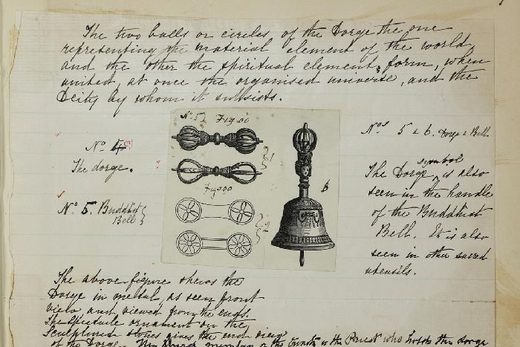 The two balls or circles, of the Dorge the one
representing the material element of the world,
and the other the spiritual element, form, when
united, at once the organised universe, and the
Deity by whom it subsists.
No 4
The dorge.
No 5. Buddhist
Bell
No 5 & 6. Dorge & Bell
The Dorge symbol is also
seen in the handle
of the Buddhist
Bell. It is also
seen in other sacred
utensils.
The above figure shews the
Dorge in metal, as seen front
view and viewed from the ends.
The spectacle ornament on the
sculptured stones gives the end view
of the Dorge.
the Priest who holds the dorge